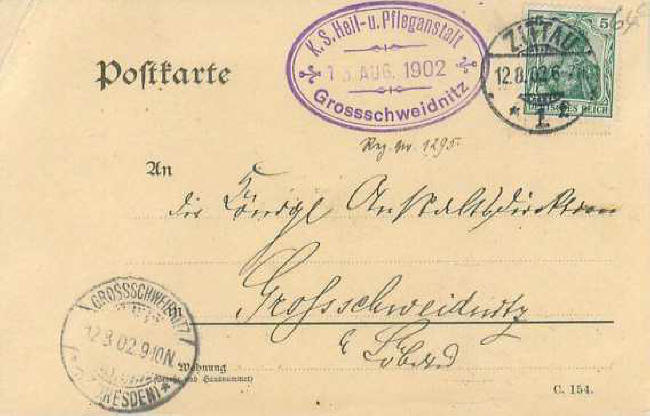 Postkarte
K. S. Heil- u. Pfleganstalt
13 AUG. 1902
Grossschweidnitz
ZITTAU
12.8.02.6-7
1
5
DEUTSCHES REICH
64
Reg. Nr. 1295.
An
die Königl Anstaltsdirektion
in
Grossschweidnitz
b Löbau
GROSSSCHWEIDNITZ
12.8.02.9-10N.
(DRESDEN)
Wohnung
(Straße und Hausnummer)
C. 154.